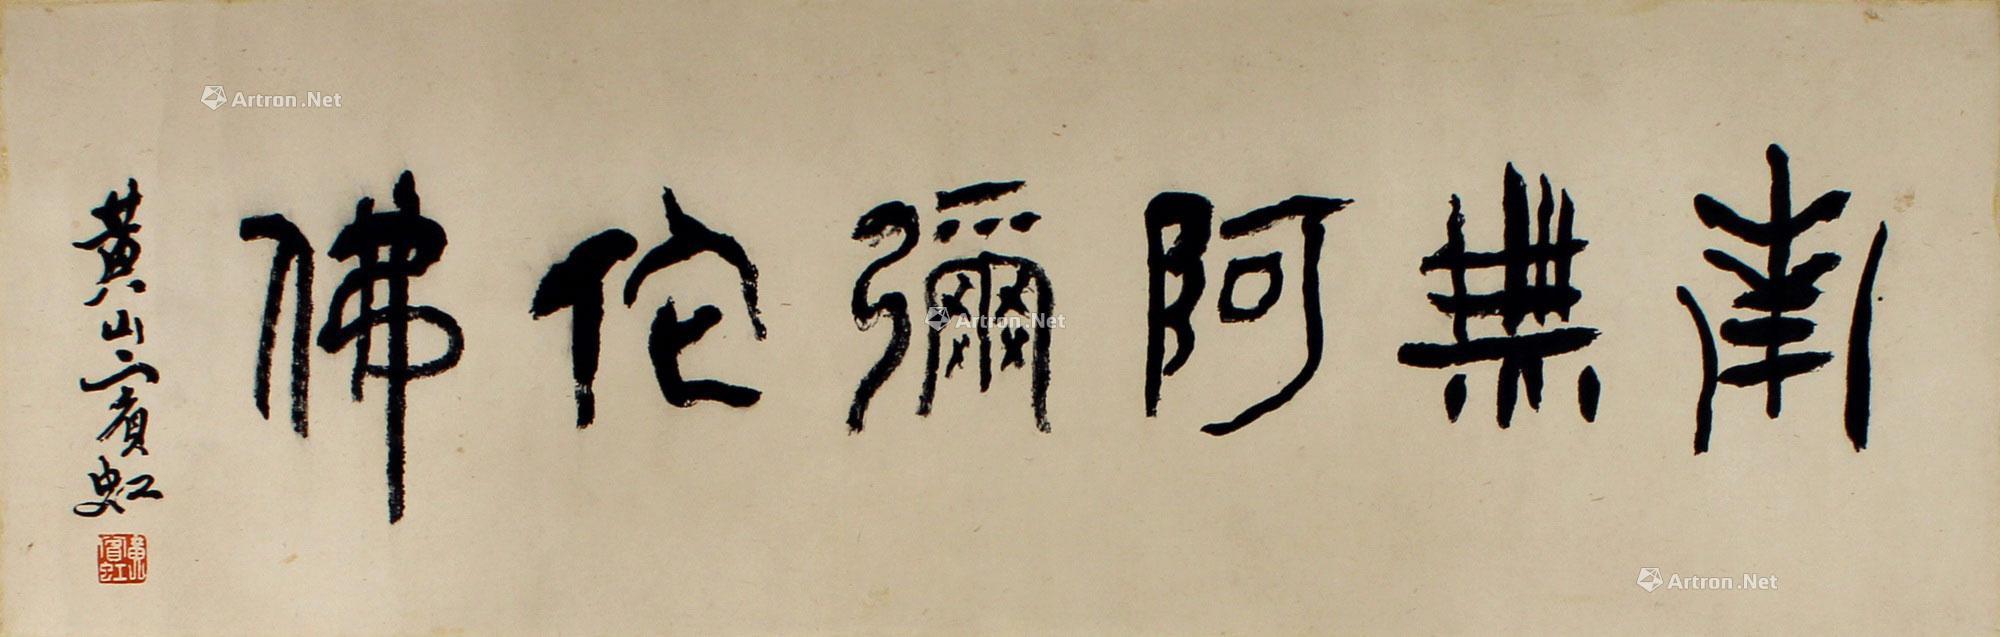 南無阿彌陀佛
黃山賓虹
黃賓虹
Artron.Net
Artron.Net
Artron.Net